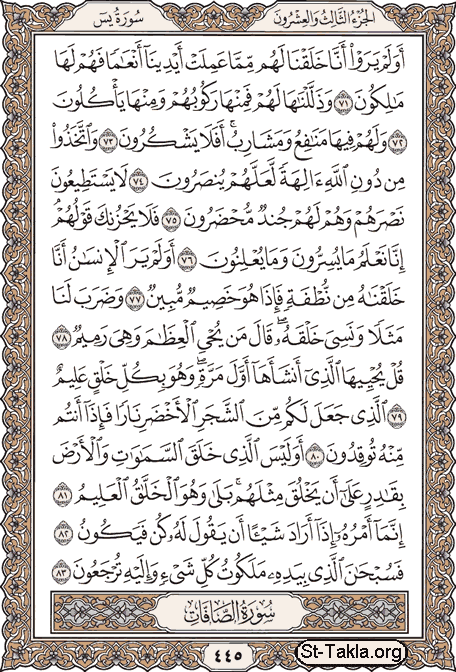 الجزء الثالث والعشرون سورة يس
أَوَلَمْ يَرَوْا۟ أَنَّا خَلَقْنَا لَهُم مِّمَّا عَمِلَتْ أَيْدِينَآ أَنْعَٰمًا فَهُمْ لَهَا
مَٰلِكُونَ ٧١ وَذَلَّلْنَٰهَا لَهُمْ فَمِنْهَا رَكُوبُهُمْ وَمِنْهَا يَأْكُلُونَ
٧٢ وَلَهُمْ فِيهَا مَنَٰفِعُ وَمَشَارِبُ ۖ أَفَلَا يَشْكُرُونَ ٧٣ وَٱتَّخَذُوا۟
مِن دُونِ ٱللَّهِ ءَالِهَةً لَّعَلَّهُمْ يُنصَرُونَ ٧٤ لَا يَسْتَطِيعُونَ
نَصْرَهُمْ وَهُمْ لَهُمْ جُندٌ مُّحْضَرُونَ ٧٥ فَلَا يَحْزُنكَ قَوْلُهُمْ ۘ
إِنَّا نَعْلَمُ مَا يُسِرُّونَ وَمَا يُعْلِنُونَ ٧٦ أَوَلَمْ يَرَ ٱلْإِنسَٰنُ أَنَّا
خَلَقْنَٰهُ مِن نُّطْفَةٍ فَإِذَا هُوَ خَصِيمٌ مُّبِينٌ ٧٧ وَضَرَبَ لَنَا
مَثَلًا وَنَسِىَ خَلْقَهُۥ ۖ قَالَ مَن يُحْىِ ٱلْعِظَٰمَ وَهِىَ رَمِيمٌ ٧٨
قُلْ يُحْيِيهَا ٱلَّذِىٓ أَنشَأَهَآ أَوَّلَ مَرَّةٍ ۖ وَهُوَ بِكُلِّ خَلْقٍ عَلِيمٌ
٧٩ ٱلَّذِى جَعَلَ لَكُم مِّنَ ٱلشَّجَرِ ٱلْأَخْضَرِ نَارًا فَإِذَآ أَنتُم
مِّنْهُ تُوقِدُونَ ٨٠ أَوَلَيْسَ ٱلَّذِى خَلَقَ ٱلسَّمَٰوَٰتِ وَٱلْأَرْضَ
بِقَٰدِرٍ عَلَىٰٓ أَن يَخْلُقَ مِثْلَهُم ۚ بَلَىٰ وَهُوَ ٱلْخَلَّٰقُ ٱلْعَلِيمُ ٨١
إِنَّمَآ أَمْرُهُۥٓ إِذَآ أَرَادَ شَيْـًٔا أَن يَقُولَ لَهُۥ كُن فَيَكُونُ ٨٢
فَسُبْحَٰنَ ٱلَّذِى بِيَدِهِۦ مَلَكُوتُ كُلِّ شَىْءٍ وَإِلَيْهِ تُرْجَعُونَ ٨٣
سورة الصافات
٤٤٥
St-Takla.org